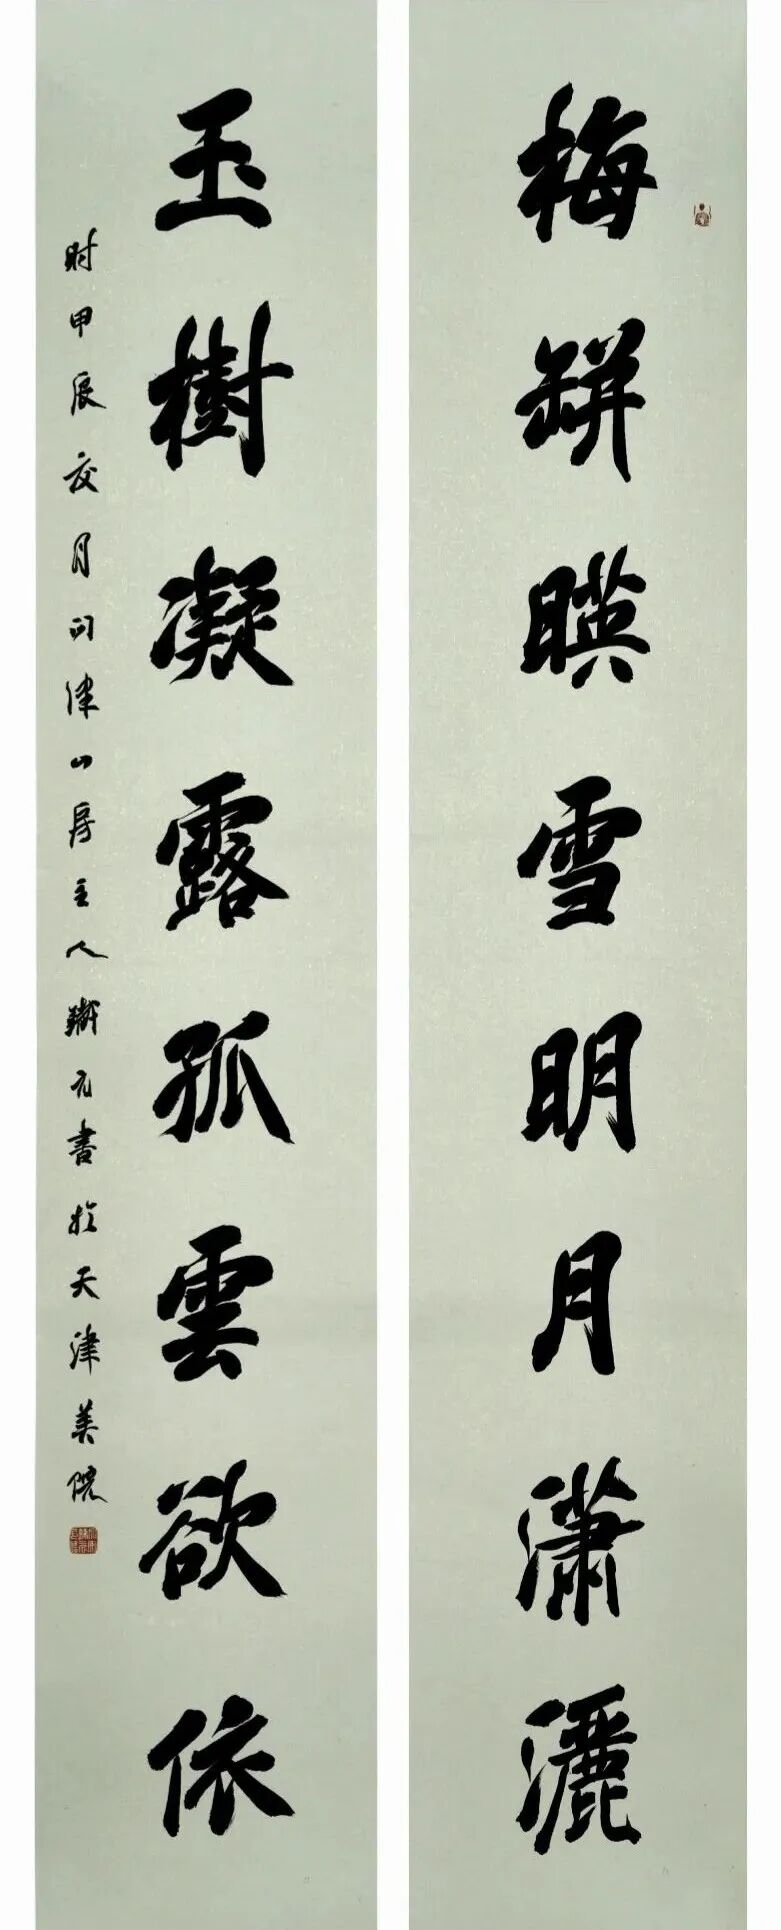 梅缾暎雪明月潇灑
玉樹凝露孤雲欲依
时甲辰夜月问津山房主人鐵元書於天津美院